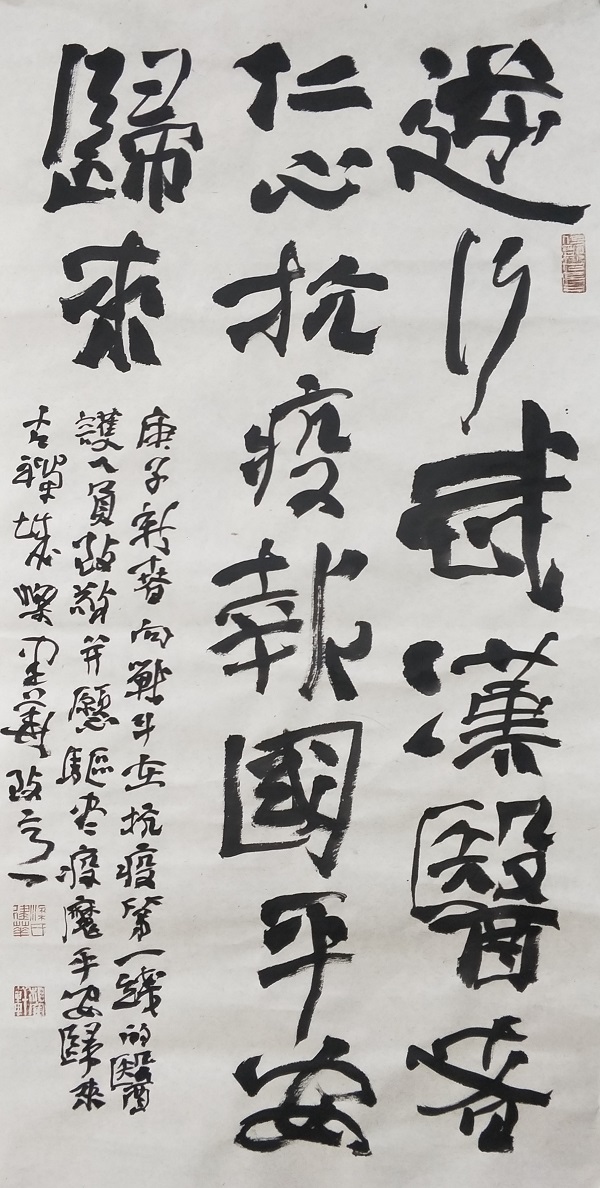 逆行武漢醫者
仁心抗疫報國平安
歸來
庚子新春向戰斗在抗疫第一線的醫
護人員致敬并願驅尽疫魔平安歸來
古禪城梁建華敬言